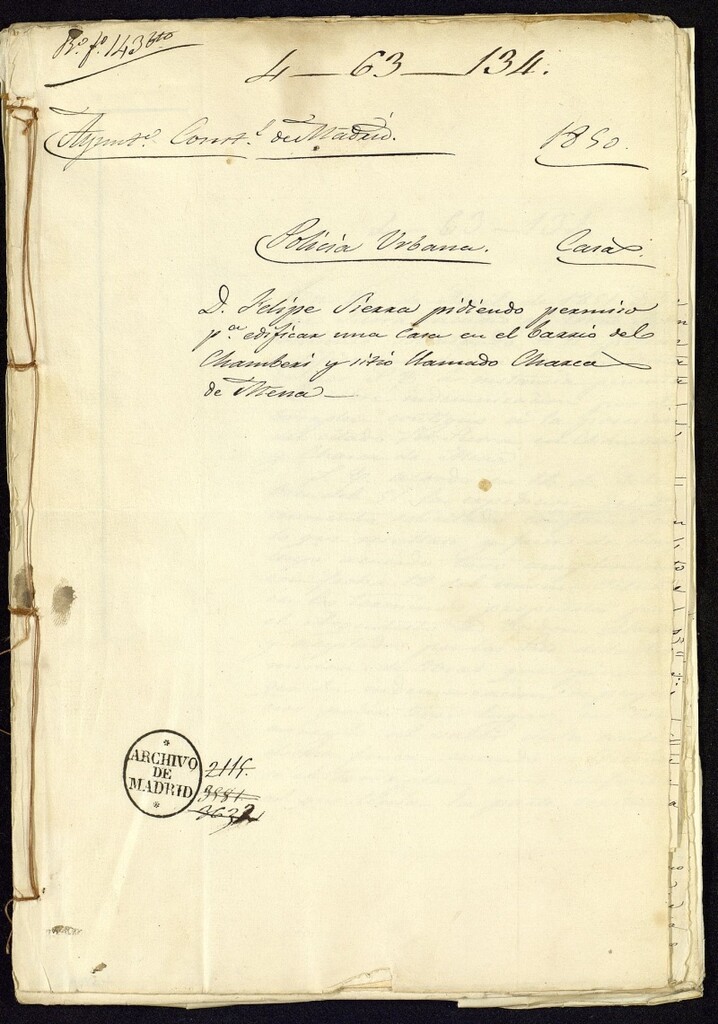 Rº fº 143 vto
4-63-134.
Ayuntº. Const.l de Madrid. 1850.
Policia Urbana. Casas.
D. Felipe Sierra pidiendo permiso
p.a edificar una casa en el barrio de
Chamberi y sitio llamado Charca
de Mena
ARCHIVO
DE
MADRID
2115.
3981.